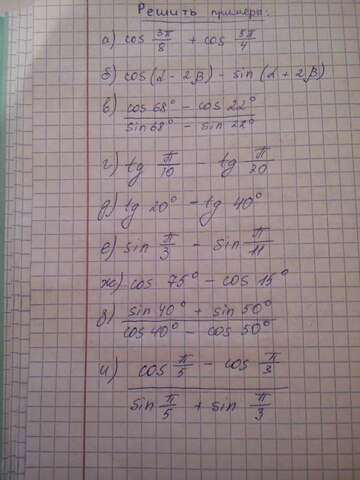 Решить примера:
а) cos 3π/8 + cos 5π/4
б) cos(α - 2β) - sin(α + 2β)
в) cos 68° - cos 22° / sin 68° - sin 22°
г) tg π/10 - tg π/20
д) tg 20° - tg 40°
е) sin π/3 - sin π/11
ж) cos 75° - cos 15°
з) sin 40° + sin 50° / cos 40° - cos 50°
и) cos π/5 - cos π/3 / sin π/5 + sin π/3